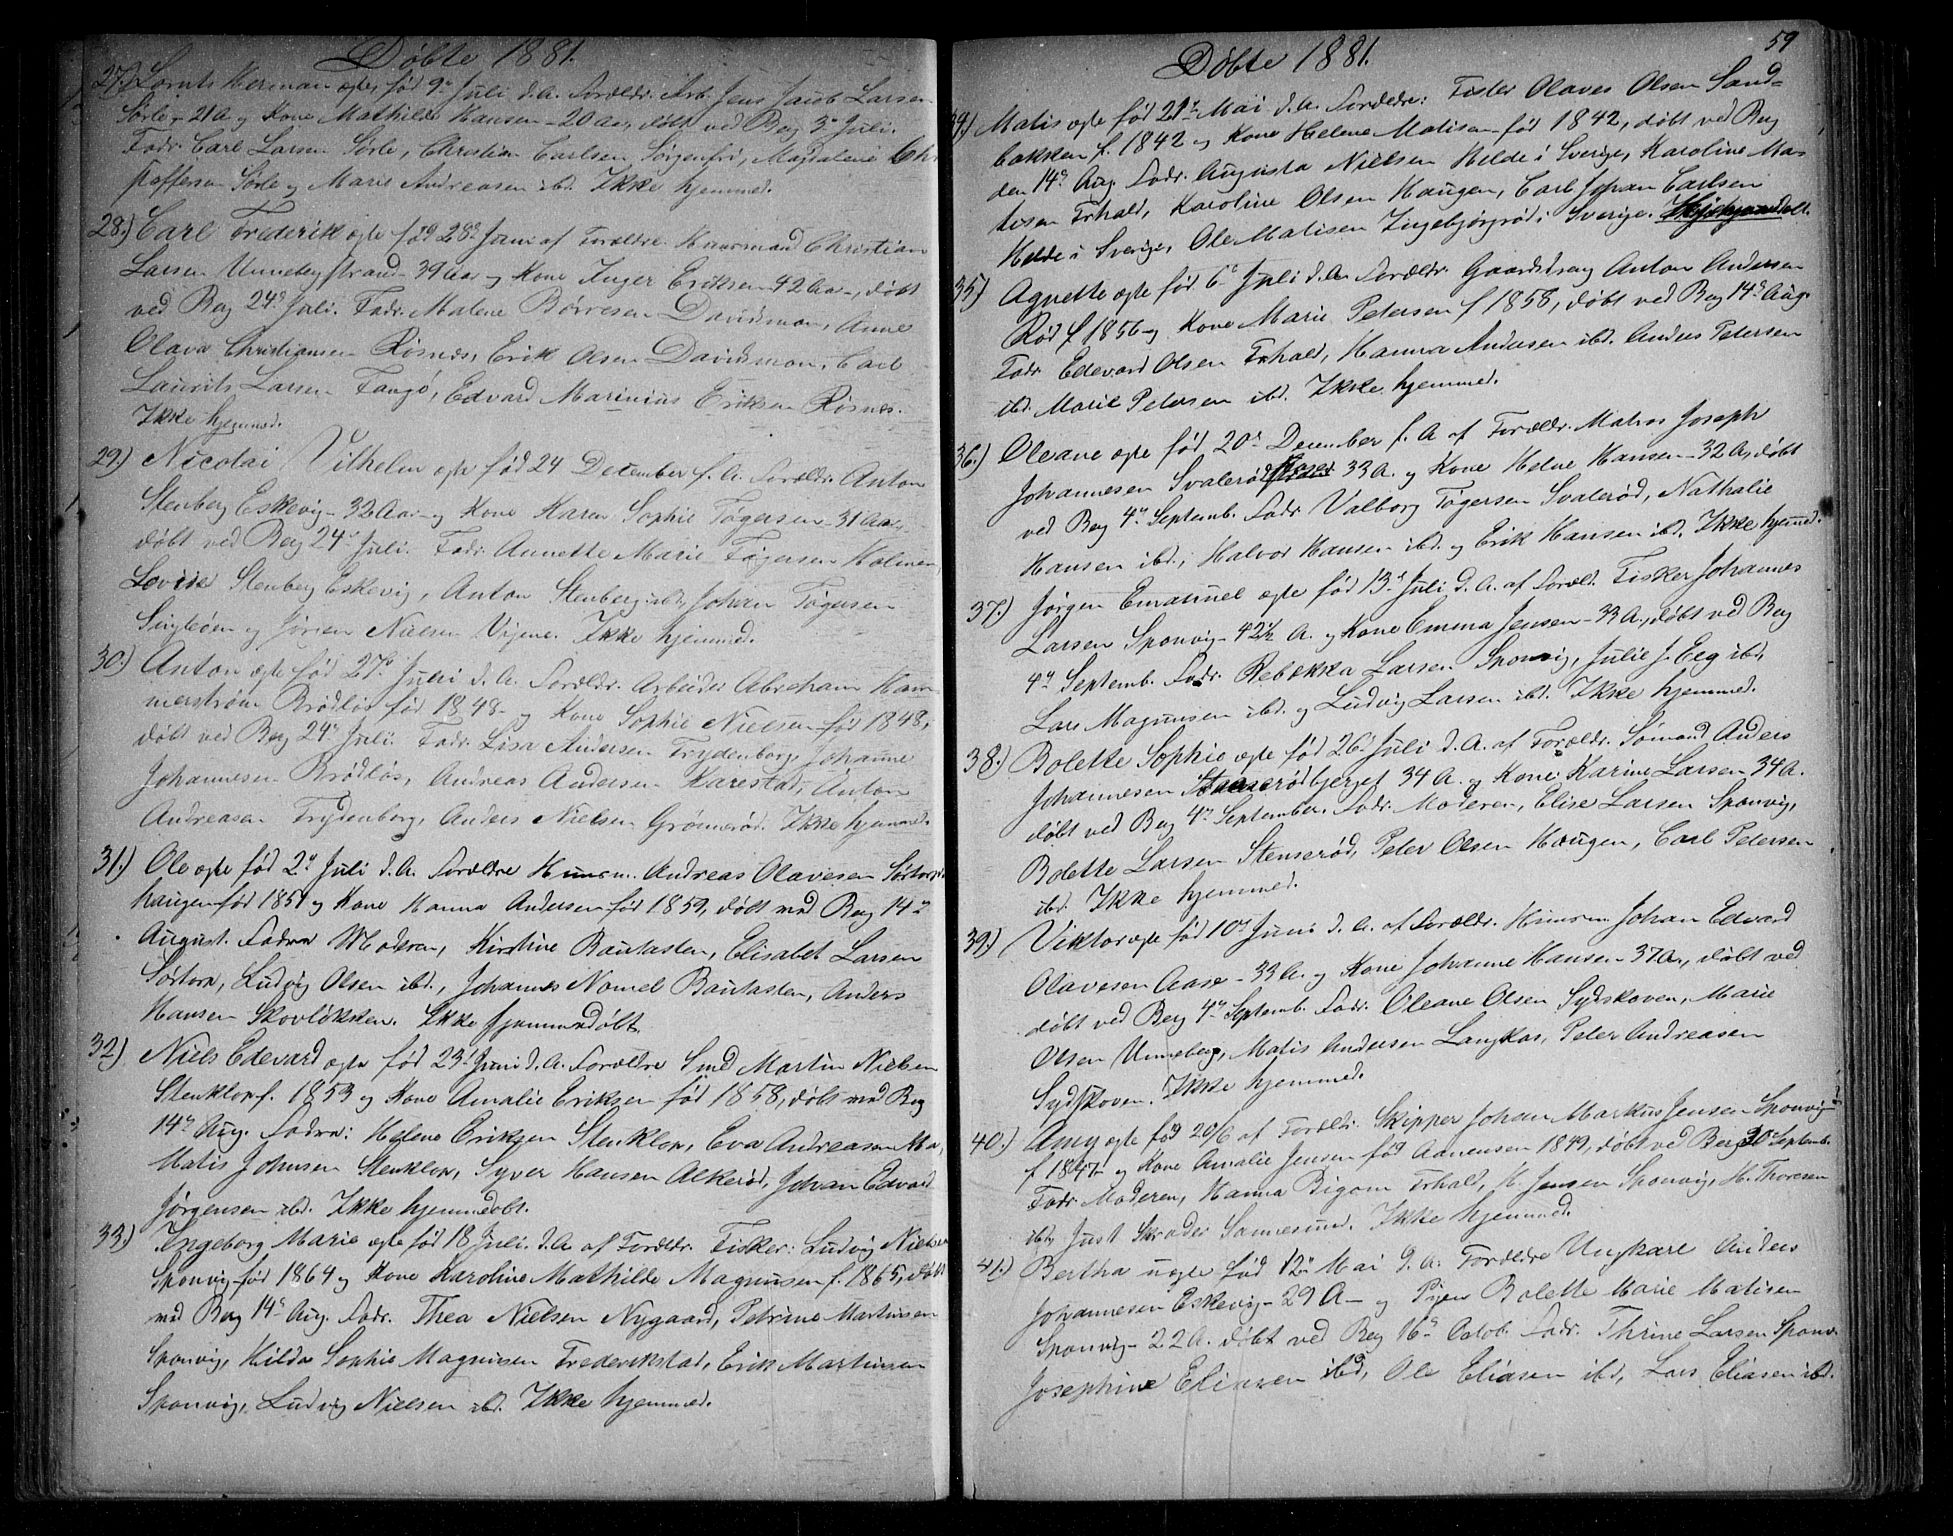 Døbte 1881.
27.) Lornts Herman ægte, født 9de Juli d. A. Forældr. Arb. Jens Jacob Larsen
Sørle - 21 A og Kone Mathilde Hansen - 20 Aar, døbt ved Berg 3de Juli.
Fadr. Carl Larsen Sørle, Christian Carlsen Sørgenfri, Magdalene Chr
stoffersen Sørle og Marie Andreasen ibd. Ikke hjemmed.
28.) Carl Frederik ægte født 28de Juni af Forældre Huusmand Christian
Larsen Unnebergstrand - 39 Aar og Kone Inger Eriksen - 42 Aar, døbt
ved Berg 24de Juli. Fadr. Malene Børresen Davidsmon, Anne
Olava Christiansen Røsnes, Erik Olsen Davidsmon, Carl
Laurits Larsen Tangø, Edvard Marinius Eriksen Røsnes.
Ikke hjemmed.
29.) Nicolai Vilhelm ægte født 24 December f. A. Forældr. Anton
Stenberg Eskevig - 32 Aar og Kone Karen Sophie Tøgersen - 31 Aar,
døbt ved Berg 24de Juli. Fadr. Annette Marie Tøgersen Holmen,
Lovise Stenberg Eskevig, Anton Stenberg ibd, Johan Tøgersen
Singløen og Jørgen Nielsen Vijene. Ikke hjemmed.
30.) Anton ægte født 27de Juli d. A. Forældr. Arbeider Abraham Ham-
merstrøm Brødløs født 1848 - og Kone Sophie Nielsen født 1848,
døbt ved Berg 24de Juli. Fadr. Lisa Andersen Frydenborg, Johanne
Johannesen Brødløs, Andreas Andersen Karestad, Anton
Andreasen Frydenberg, Anders Nielsen Grønnerød. Ikke hjemmed.
31.) Ole ægte født 2de Juli d. A. Forældre Huusm. Andreas Olavesen Sørtorp
haugen født 1851 og Kone Hanna Andersen født 1859, døbt ved Berg 14de
August. Fadre Moderen, Kirstine Bautasten, Elisabet Larsen
Sørtorp, Ludvig Olsen ibd., Johannes Nomel Bautasten, Anders
Hansen Skovløkken. Ikke hjemmedøbt.
32.) Niels Edevard ægte født 23de Juni d. A. Forældre Smed Martin Nielsen
Stenklop f. 1853 og Kone Amalie Eriksen født 1858, døbt ved Berg
14de Aug. Fadre: Helene Eriksen Stenklop, Eva Andreasen ibd,
Matis Johnsen Stenklop, Syver Hansen Alkerød, Johan Edvard
Jørgensen ibd. Ikke hjemmedøbt.
33.) Ingeborg Marie ægte født 18 Juli d. A af Forældr. Fisker: Ludvig Nielsen
Sponvig født 1864 og Kone Karoline Mathilde Magnusen f. 1865, døbt
ved Berg 14de Aug. Fadr. Thea Nielsen Nygaard, Petrine Martinsen
Sponvig, Hilda Sophie Magnusen Frederikstad, Erik Martinsen
Sponvig, Ludvig Nielsen ibd. Ikke hjemmed.
59
Døbte 1881.
34.) Matis ægte født 21de Mai d. A. Forældre: Fisker Olaves Olsen Sand-
bakken f. 1842 og Kone Helene Matisen født 1842, døbt ved Berg
den 14de Aug. Fadr. Augusta Nielsen Helde i Sverige, Karoline Ma-
tisen Frhald, Karoline Olsen Haugen, Carl Johan Carlsen
Helde i Sverige, Ole Matisen Ingebjørgrød i Sverige.
35.) Agnette ægte født 6te Juli d. A. Forældr. Gaardsdreng Anton Andersen
Rød f 1856 og Kone Marie Petersen f 1858, døbt ved Berg 14de Aug.
Fadr. Edevard Olsen Frhald, Hanna Andersen ibd. Anders Petersen
ibd. Marie Petersen ibd. Ikke hjemmed.
36.) Oleane ægte født 20de December f. A af Forældr. Matros Joseph
Johannesen Svalerød 33 A. og Kone Helne Hansen - 32 A, døbt
ved Berg 4de Septemb. Fadr. Valborg Tøgersen Svalerød, Nathalie
Hansen ibd., Halvor Hansen ibd. og Erik Hansen ibd. Ikke hjemmed.
37.) Jørgen Emanuel ægte født 13de Juli d. A. af Foræld. Fisker Johannes
Larsen Sponvig - 42½ A. og Kone Emma Jensen - 33 A., døbt ved Berg
4de Septemb. Fadr. Rebekka Larsen Sponvig, Julie J. Eeg ibd,
Lars Magnusen ibd. og Ludvig Larsen ibd. Ikke hjemmed.
38.) Bolette Sophie ægte født 26de Juli d. A. af Forældr. Sømand Anders
Johannesen Stenserødbjerget 34 A. og Kone Karine Larsen - 34 A.
døbt ved Berg 4de September. Fadr. Moderen, Elise Larsen Sponvig,
Bolette Larsen Stenserød, Peter Olsen Haugen, Carl Petersen
ibd. Ikke hjemmed.
39.) Viktor ægte født 10de Juni d. A. af Forældr. Huusm. Johan Edvard
Olavesen Aase - 33 A. og Kone Johanne Hansen - 37 A., døbt ved
døbt ved Berg 4de Septemb. Fadr. Oleane Olsen Sydskoven, Marie
Olsen Unneberg, Matis Andersen Langkas, Peter Andreasen
Sydskoven. Ikke hjemmed.
40.) Amy ægte født 20/6 af Forældr. Skipper Johan Markus Jensen Sponvig
f 1847 - og Kone Amalie Jensen født Aanensen 1849, døbt ved Berg 30de Septemb.
Fadr. Moderen, Hanna Bigom Frhald, H. Jensen Sponvig, H. Thoresen
ibd, Just Skrøder Sannesund. Ikke hjemmed.
41.) Bertha uægte født 12de Mai d. A. Forældre Ungkarl Anders
Johannesen Eskevig - 29 A - og Pigen Bolette Marie Matisen
Sponvig - 22 A. døbt ved Berg 16de Octob. Fadr. Thrine Larsen Sponv.
Josephine Eliasen ibd, Ole Eliasen ibd, Lars Eliasen ibd.